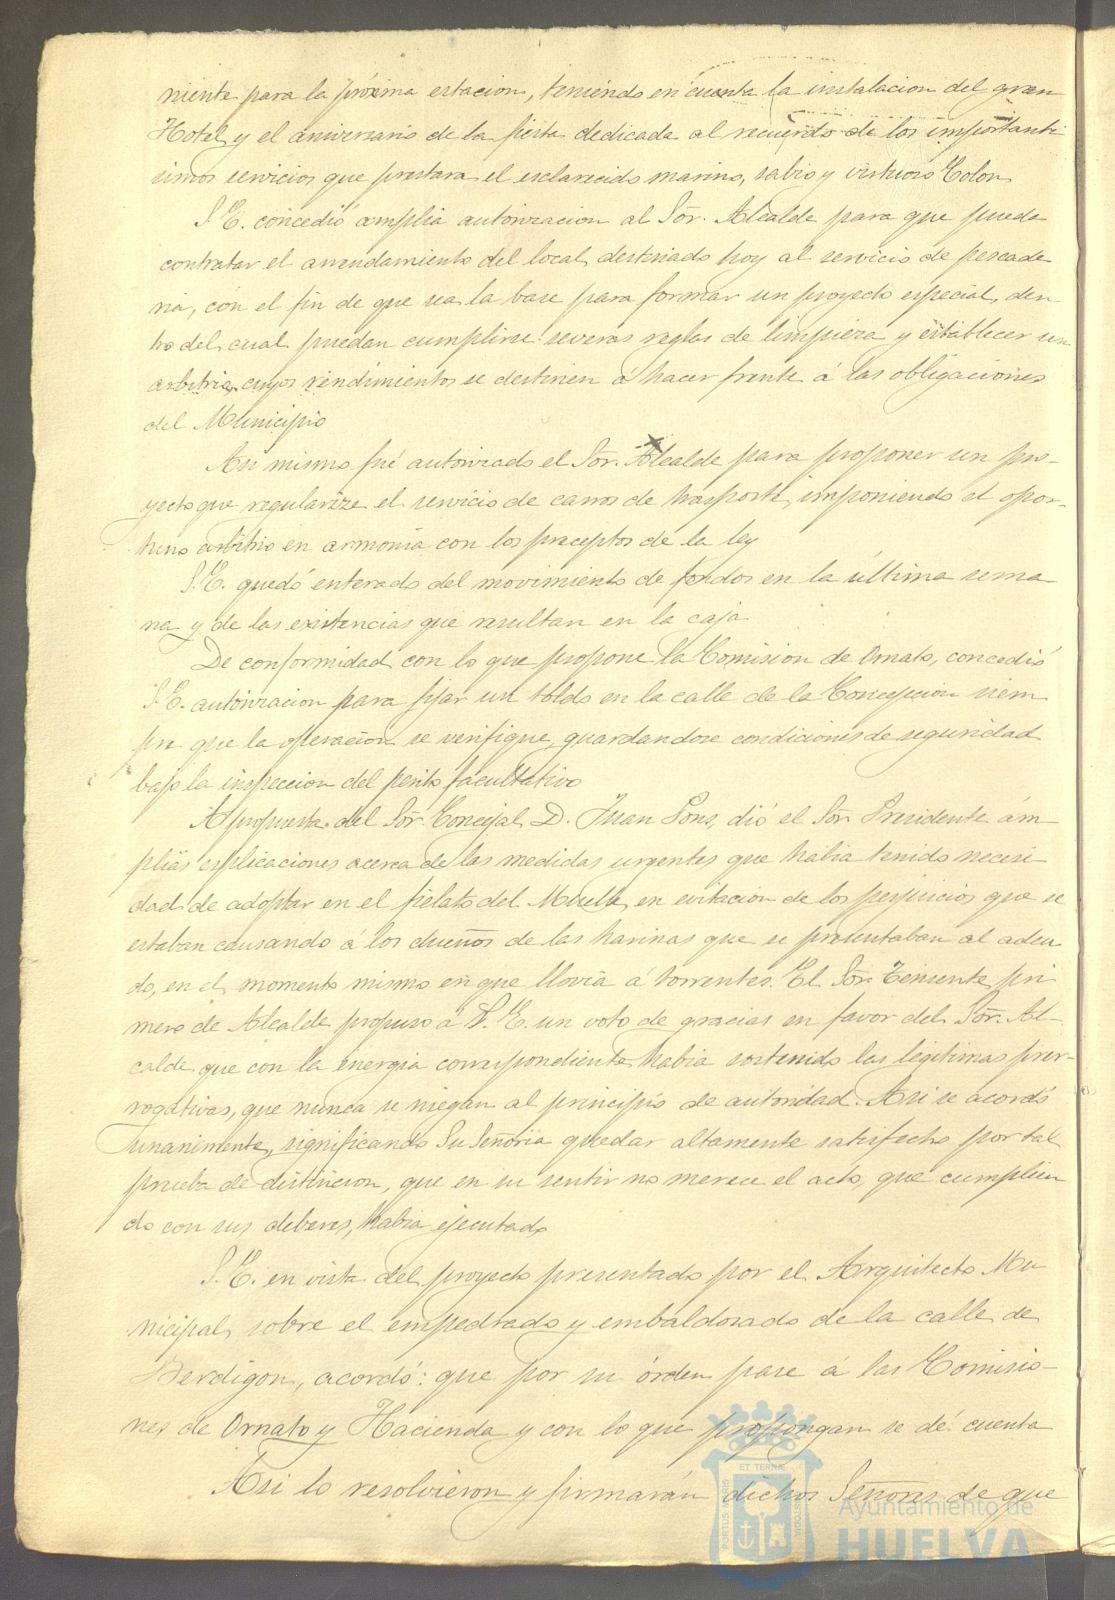 niente para la próxima estacion, teniendo en cuenta la instalacion del gran
Hotel y el aniversario de la fiesta dedicada al recuerdo de los importanti
simos servicios que prestara el esclarecido marino, sabio y virtuoso Colon
S. E. concedió amplia autorizacion al Sor. Alcalde para que pueda
contratar el arrendamiento del local destinado hoy al servicio de pescade
ria, con el fin de que sea la base para formar un proyecto especial, den
tro del cual puedan cumplirse severas reglas de limpieza y establecer un
arbitrio cuyos rendimientos se destinen á hacer frente á las obligaciones
del Municipio
Asi mismo fué autorizado el Sor. Alcalde para proponer un pro-
yecto que regularize el servicio de carros de trasporte, imponiendo el opor-
tuno arbitrio en armonia con los preceptos de la ley
S. E. quedó enterado del movimiento de fondos en la última sema
na y de las existencias que resultan en la caja
De conformidad con lo que propone la Comision de Ornato, concedió
S. E. autorizacion para fijar un toldo en la calle de la Concepcion siem
pre que la operacion se verifique, guardandose condiciones de seguridad
bajo la inspeccion del perito facultativo
A propuesta del Sor. Concejal D. Juan Pons, dió el Sor. Presidente ám-
plias esplicaciones acerca de las medidas urgentes que habia tenido necesi
dad de adoptar en el fielato del Muelle, en evitacion de los perjuicios que se
estaban causando á los dueños de las harinas que se presentaban al adeu
do, en el momento mismo en que llovia á torrentes. El Sor. Teniente pri
mero de Alcalde propuso á S. E. un voto de gracias en favor del Sor. Al-
calde que con la energia correspondiente habia sostenido las legitimas prer-
rogativas, que nunca se niegan al principio de autoridad. Asi se acordó
unanimente, significando Su Señoria quedar altamente satisfecho por tal
prueba de distincion, que en su sentir no merece el acto, que cumplien
do con sus deberes, habia ejecutado
S. E. en vista del proyecto presentado por el Arquitecto Mu
nicipal, sobre el empedrado y embaldosado de la calle de
Berdigon, acordó: que por su órden pase á las Comisio-
nes de Ornato y Hacienda y con lo que propongan se dé cuenta
Asi lo resolvieron y firmarán dichos Señores de que
Ayuntamiento de
HUELVA